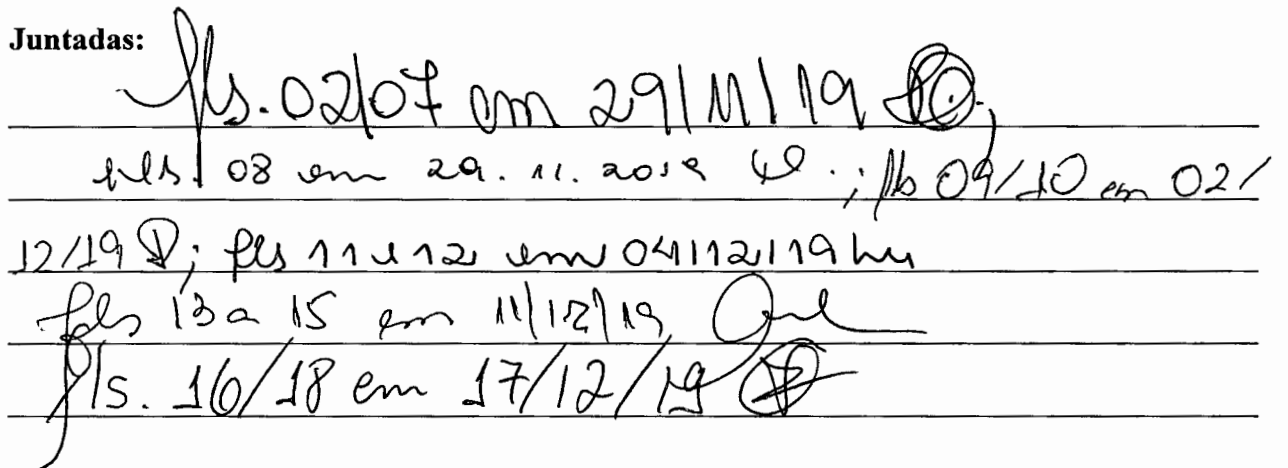 Juntadas:
fls. 02/07 em 29/11/19
fls. 08 em 29.11.2019 ; fls 09/10 em 02/
12/19 ; fls 11 e 12 em 04/12/19
fls 13 a 15 em 11/12/19
fls. 16/18 em 17/12/19